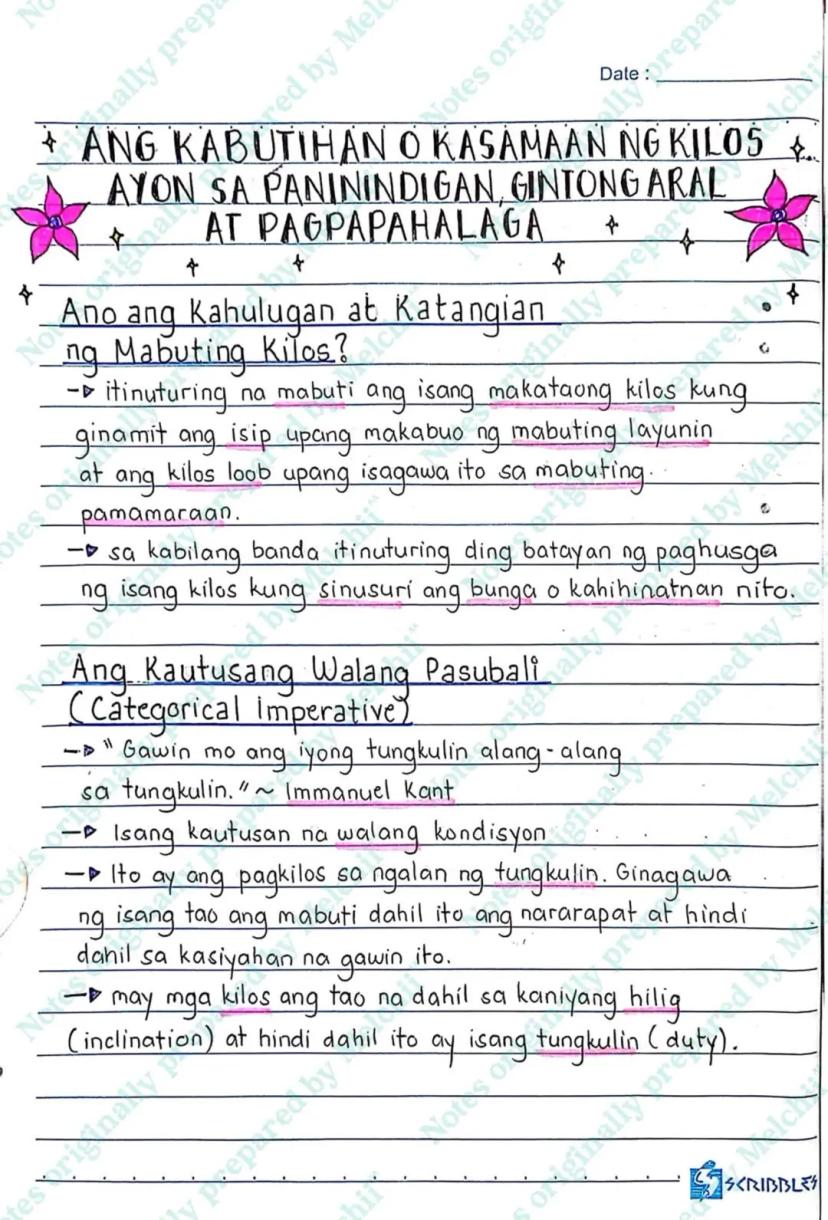 Date :
ANG KABUTIHAN O KASAMAAN NG KILOS
AYON SA PANININDIGAN, GINTONG ARAL
AT PAGPAPAHALAGA
Ano ang Kahulugan at Katangian
ng Mabuting Kilos?
itinuturing na mabuti ang isang makataong kilos kung
ginamit ang isip upang makabuo ng mabuting layunin
at ang kilos loob upang isagawa ito sa mabuting
pamamaraan.
sa kabilang banda itinuturing ding batayan ng paghusga
ng isang kilos kung sinusuri ang bunga o kahihinatnan nito.
Ang Kautusang Walang Pasubali
(Categorical Imperative)
"Gawin mo ang iyong tungkulin alang-alang
sa tungkulin." ~ Immanuel Kant
Isang kautusan na walang kondisyon
Ito ay ang pagkilos sa ngalan ng tungkulin. Ginagawa
ng isang tao ang mabuti dahil ito ang nararapat at hindi
dahil sa kasiyahan na gawin ito.
may mga kilos ang tao na dahil sa kaniyang hilig
(inclination) at hindi dahil ito ay isang tungkulin (duty).
SCRIBBLES
Notes originally prepared by Melchii"